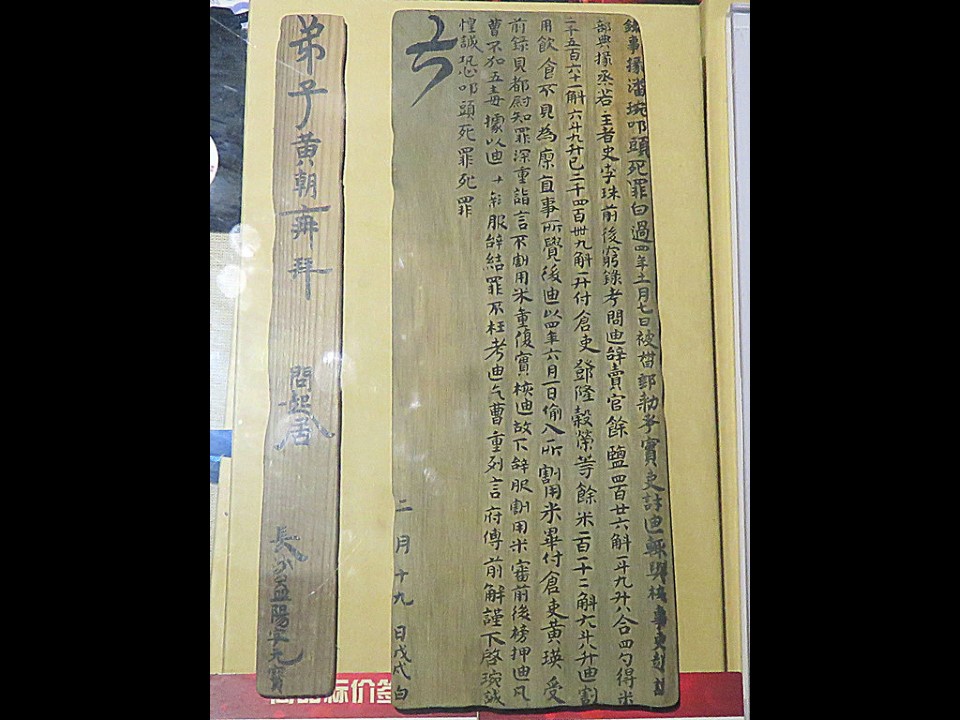 錄事掾潘琬叩頭死罪白過四年十一月七日被督郵勑考實吏許迪輒與核事吏
部典掾烝若主者史李珠前後窮錄考問迪辭賣官餘鹽四百廿六斛一斗九升八合四勺得米
二千五百六十一斛六斗九升已二千四百卌九斛一升付倉吏鄧隆穀榮等餘米一百一十二斛六斗八升迪割
用飲食不見為廖直事所覺後迪以四年六月一日偷入所割用米畢付倉吏黃瑛受
前錄見都尉知罪深重詣言不割用米重復實核迪故下辭服割用米審前後榜押迪凡
曹不加五毒據以迪服辭結罪不枉考迪乞曹重列言府傅前解謹下啓琬誠
惶誠恐叩頭死罪死罪
二月十九日戊戌白
弟子黃朝再拜
問起居
長沙益陽字元寶
标价签